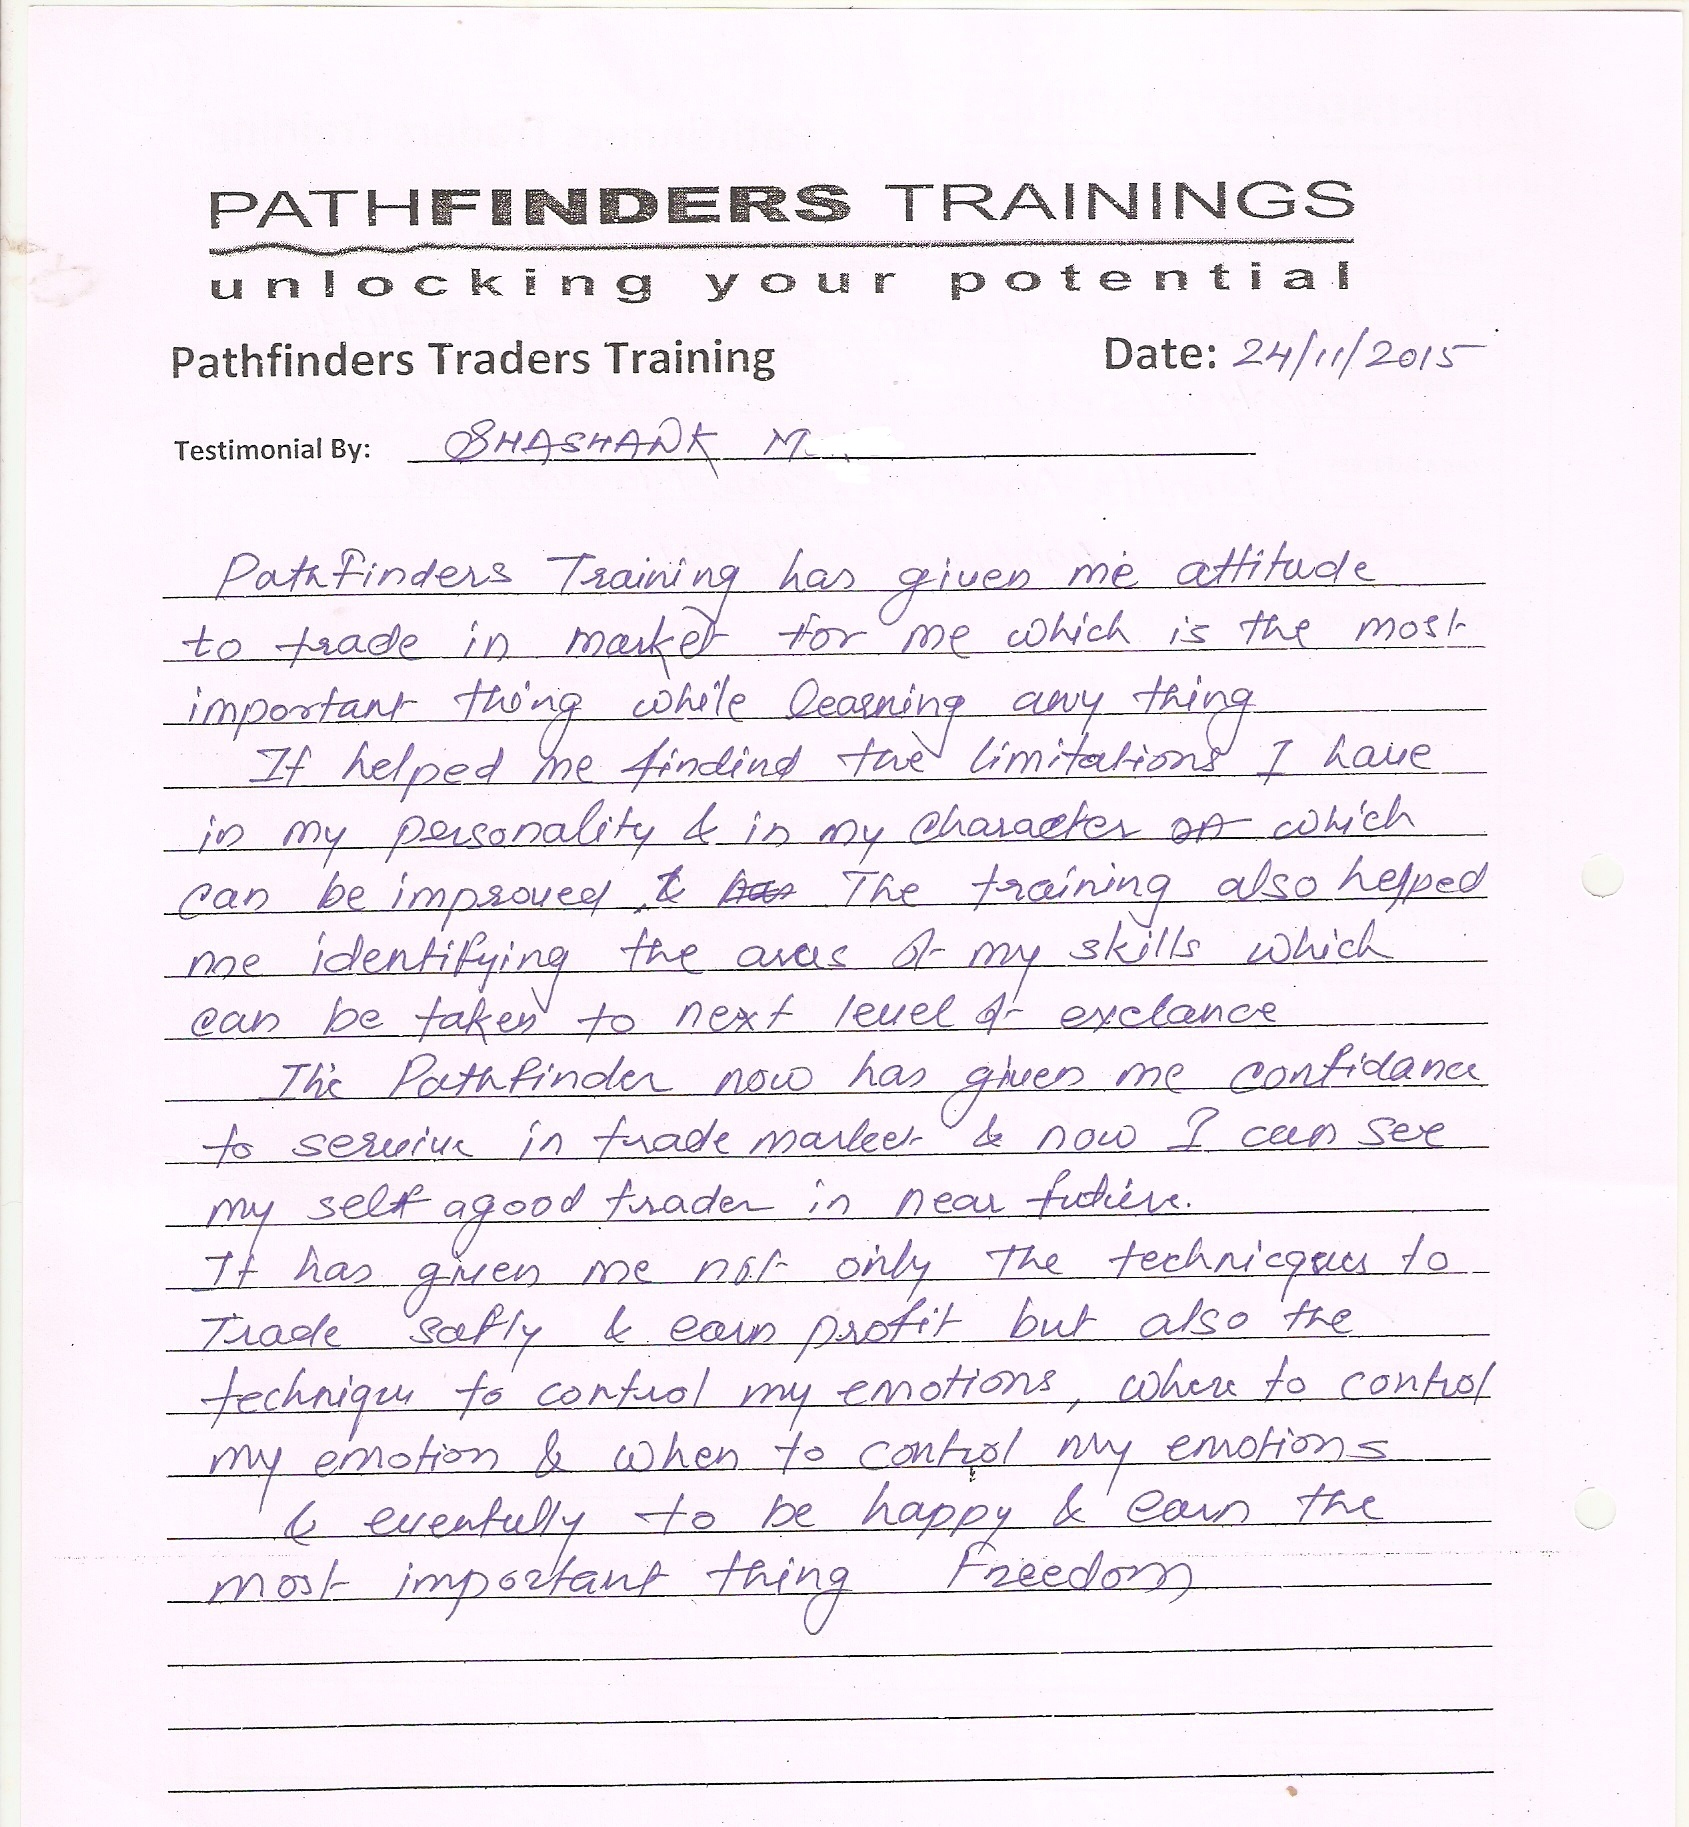 PATHFINDERS TRAININGS
unlocking your potential
Pathfinders Traders Training Date: 24/11/2015
Testimonial By: SHASHANK M.
Pathfinders Training has given me attitude
to trade in market for me which is the most
important thing while learning any thing
It helped me findind the limitations I have
in my personality & in my character which
can be improved & The training also helped
me identifying the areas of my skills which
can be taken to next level of exclance
The Pathfinder now has given me confidance
to servive in trade market & now I can see
my self a good trader in near future.
It has given me not only the technicques to
Trade safly & earn profit but also the
technique to control my emotions, where to control
my emotion & when to control my emotions
& eventully to be happy & earn the
most important thing Freedom